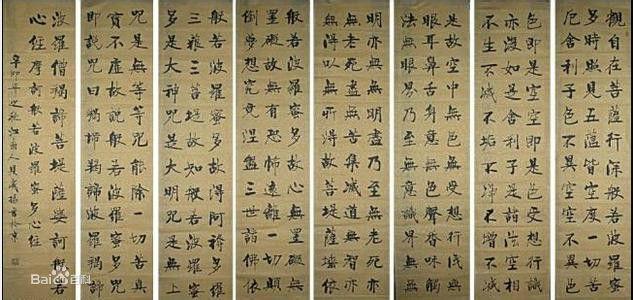 觀自在菩薩行深般若波羅蜜
多時照見五蘊皆空度一切苦
厄舍利子色不異空空不異色
色即是空空即是色受想行識
亦復如是舍利子是諸法空相
不生不滅不垢不淨不增不減
是故空中無色無受想行識無
眼耳鼻舌身意無色聲香味觸
法無眼界乃至無意識界無無
明亦無無明盡乃至無老死亦
無老死盡無苦集滅道無智亦
無得以無所得故菩提薩埵依
般若波羅蜜多故心無罣礙無
罣礙故無有恐怖遠離一切顛
倒夢想究竟涅槃三世諸佛依
般若波羅蜜多故得阿耨多羅
三藐三菩提故知般若波羅蜜
多是大神咒是大明咒是無上
咒是無等等咒能除一切苦真
實不虛故說般若波羅蜜多咒
即說咒曰揭諦揭諦波羅揭諦
波羅僧揭諦菩提薩婆訶般若
心經摩訶般若波羅蜜多心經
辛卯年之秋江南人
Bai百科